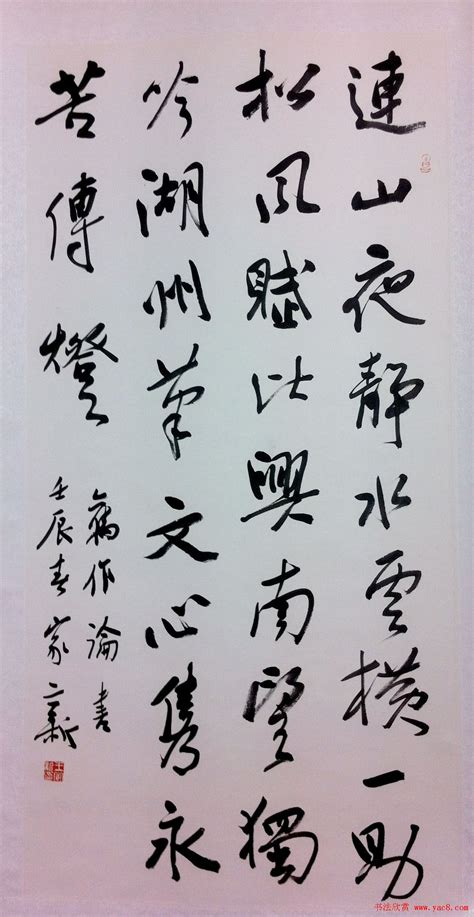 連山夜靜水雲橫一助
松風賦比興南望獨
吟湖州筆文心雋永
苦傳燈
舊作論書
壬辰春家新
书法欣赏 www.yac8.com